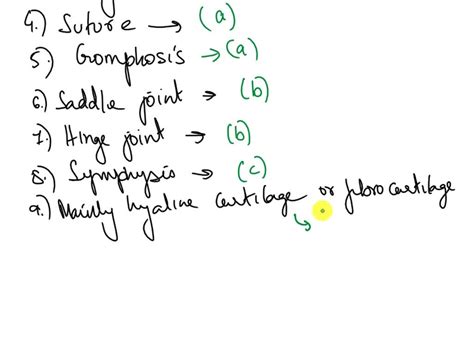 4.) Suture → (a)
5.) Gomphosis → (a)
6.) Saddle joint → (b)
7.) Hinge joint → (b)
8.) Symphysis → (c)
9.) Mainly hyaline cartilage or fibrocartilage